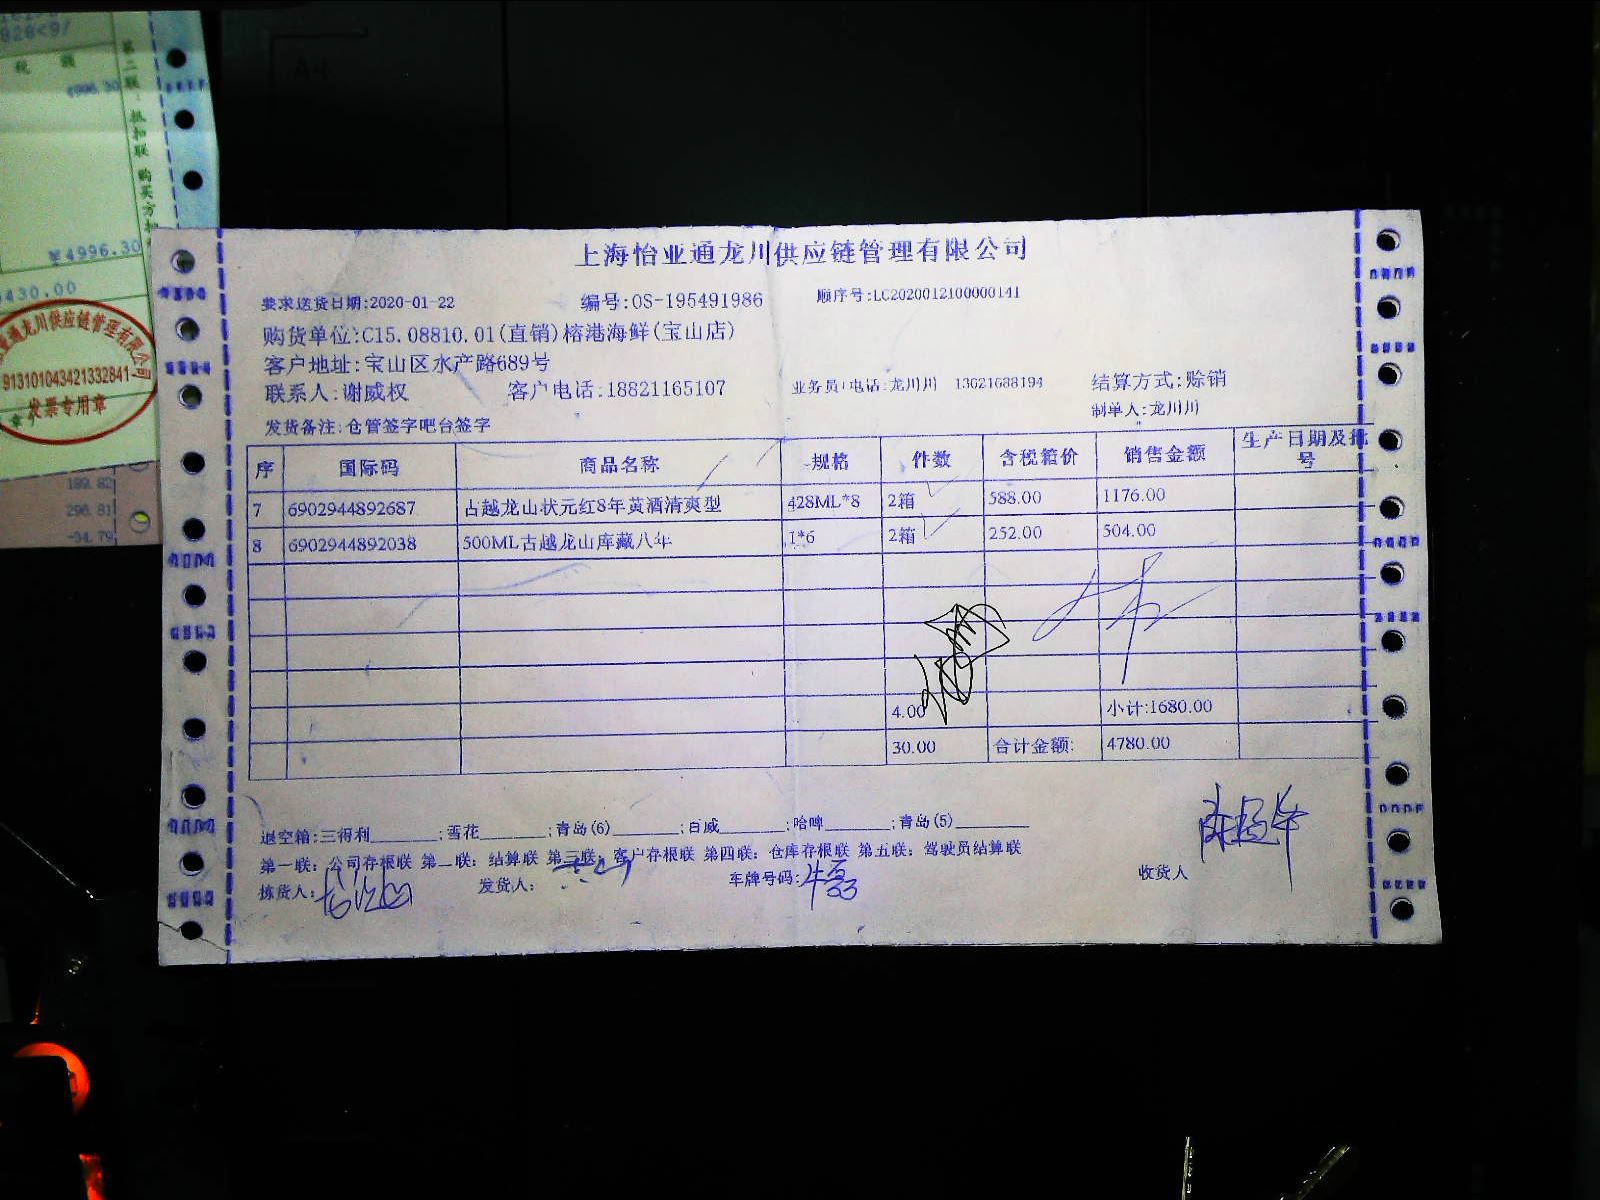 828<9/
税 额
4996.30
第二联：抵扣联 购买方
￥4996.30
430.00
通龙川供应链管理有限公司
913101043421332841
发票专用章
189.82
296.81
-34.79
上海怡亚通龙川供应链管理有限公司
要求送货日期:2020-01-22 编号:OS-195491986 顺序号:LC2020012100000141
购货单位:C15.08810.01(直销)榕港海鲜(宝山店)
客户地址:宝山区水产路689号
联系人:谢威权 客户电话:18821165107 业务员|电话:龙川川 13621688194 结算方式:赊销
制单人:龙川川
发货备注:仓管签字吧台签字
序 国际码 商品名称 规格 件数 含税箱价 销售金额 生产日期及批号
7 6902944892687 古越龙山状元红8年黄酒清爽型 428ML*8 2箱 588.00 1176.00
8 6902944892038 500ML古越龙山库藏八年 1*6 2箱 252.00 504.00
4.00 小计:1680.00
30.00 合计金额: 4780.00
退空箱:三得利________;雪花________;青岛(6)________;百威________;哈啤________;青岛(5)________
第一联：公司存根联 第二联：结算联 第三联：客户存根联 第四联：仓库存根联 第五联：驾驶员结算联
拣货人: 发货人: 车牌号码:牛磊 收货人